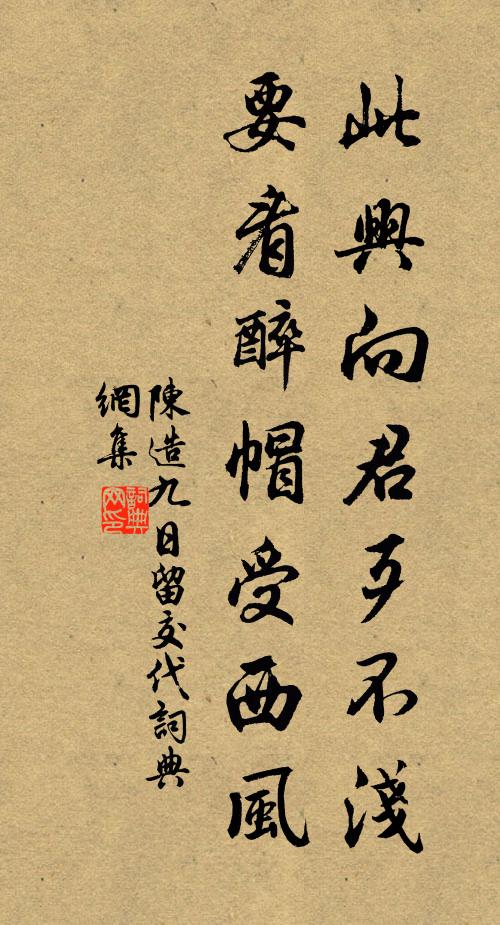 此興向君不淺
要看醉帽受西風
陳造九日留交代詞典
網集
詞典网印